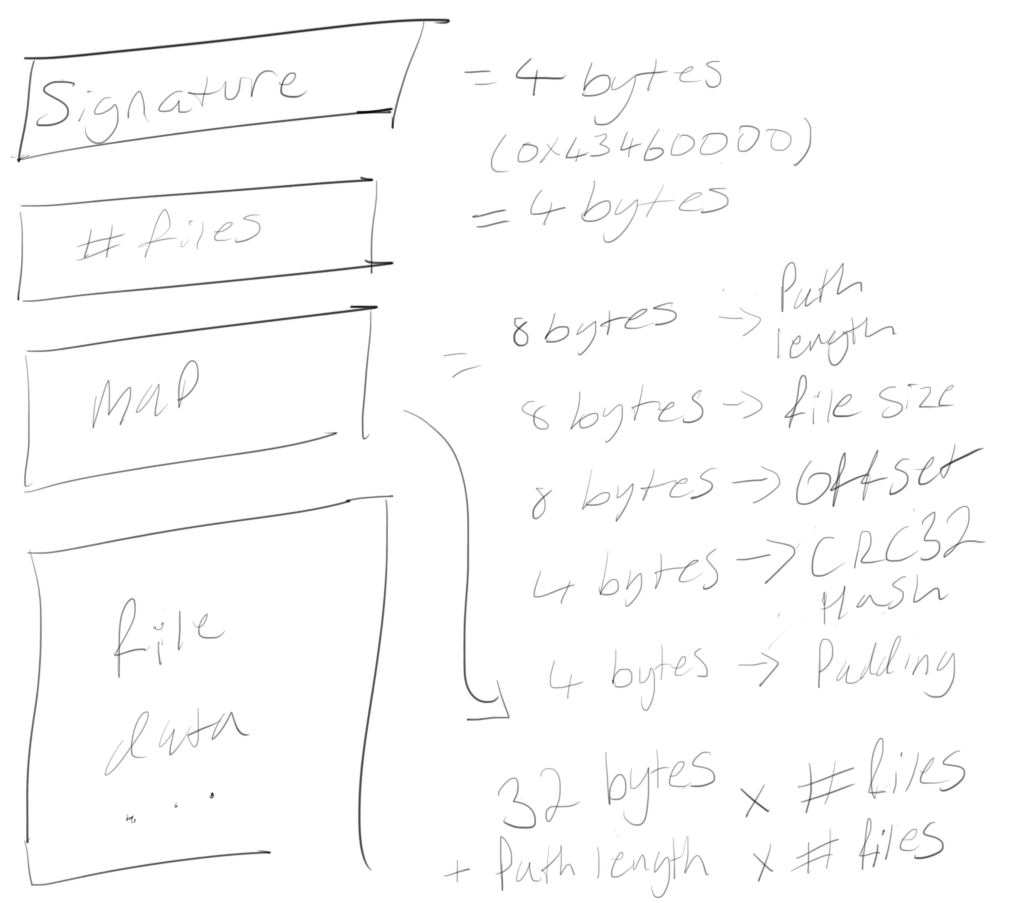 Signature = 4 bytes
(0x43460000)
# files = 4 bytes
Map = 8 bytes → Path length
8 bytes → file size
8 bytes → Offset
4 bytes → CRC32 Hash
4 bytes → Padding
file
data
...
32 bytes x # files
+ Path length x # files